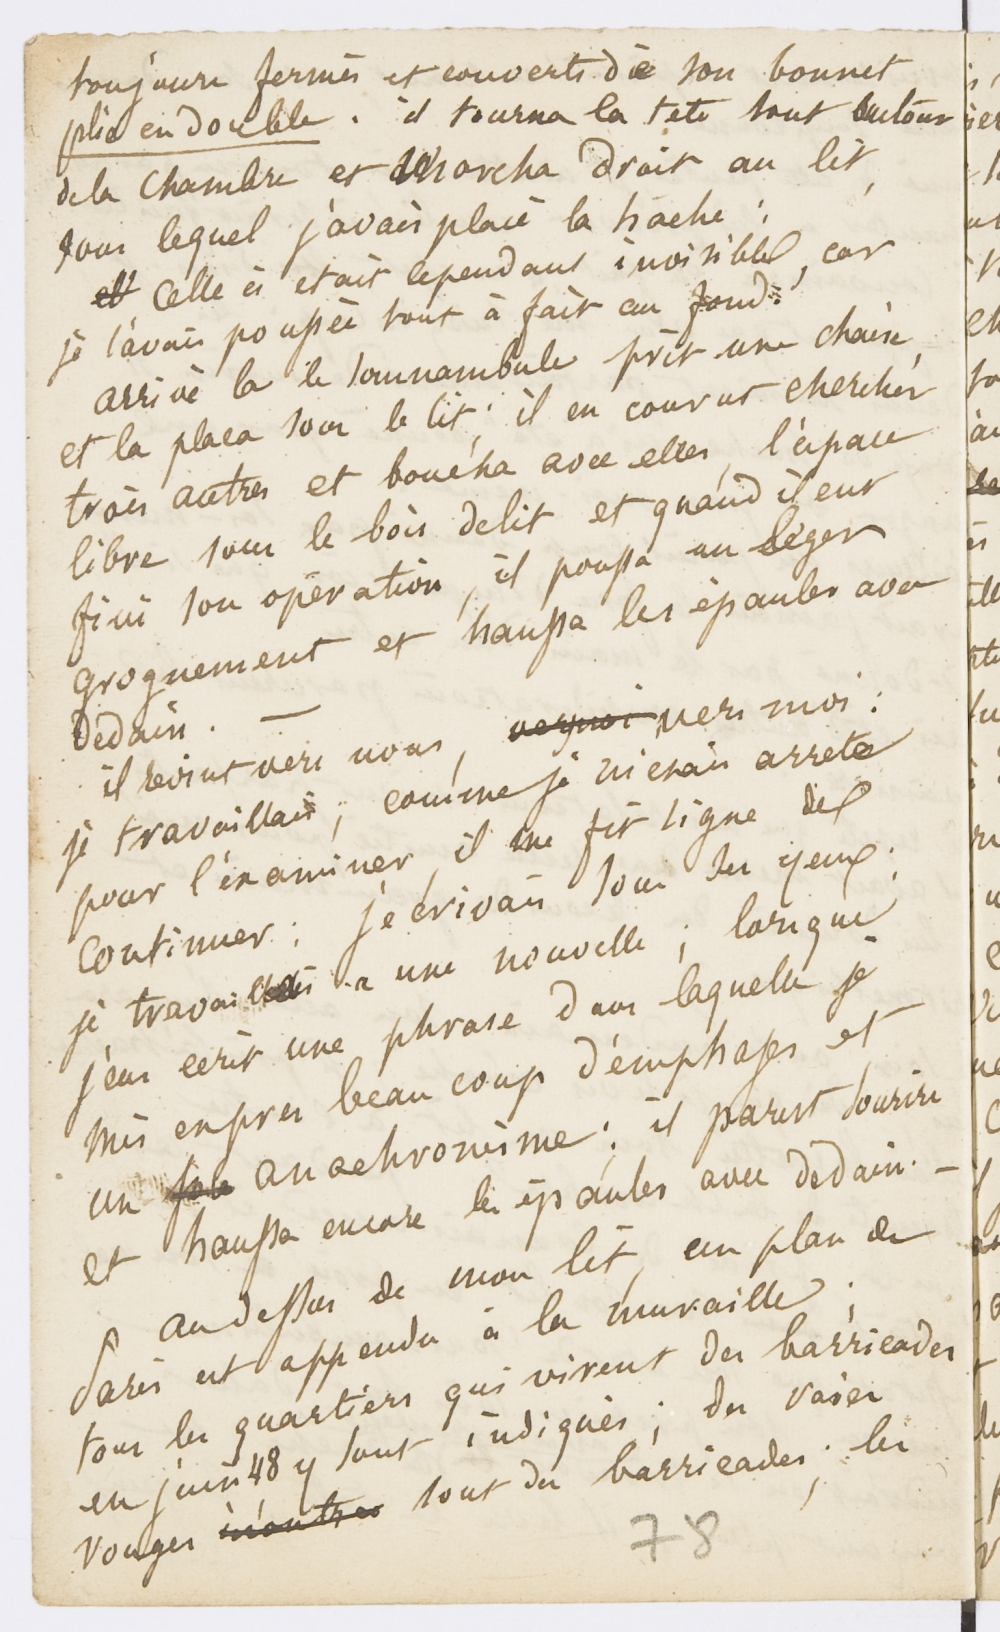 toujours fermés et couverts de son bonnet
plié en double. il tourna la tete tout autour
de la chambre et marcha droit au lit,
sous lequel j'avais placé la hache :
et celle ci etait cependant invisible, car
je l'avais poussée tout à fait au fond.
arrivé la le somnambule prit une chaise,
et la placa sous le lit ; il en courut chercher
trois autres et boucha avec elles, l'espace
libre sous le bois de lit et quand il eut
fini son opération, il poussa un léger
grognement et haussa les épaules avec
dédain. —
il revint vers nous, vers moi :
je travaillais ; comme je m'etais arreté
pour l'examiner, il me fit signe de
continuer ; j'écrivais sous ses yeux ;
je travaillais a une nouvelle ; lorsque
j'eus ecrit une phrase dans laquelle je
mis expres beaucoup d'emphases et
un anachronisme ; il parut sourire
et haussa encore les épaules avec dedain. —
au dessus de mon lit, un plan de
Paris est appendu à la muraille ;
tous les quartiers qui virent des barricades
en juin 48 y sont indiqués ; des raies
rouges sont des barricades ; les
78